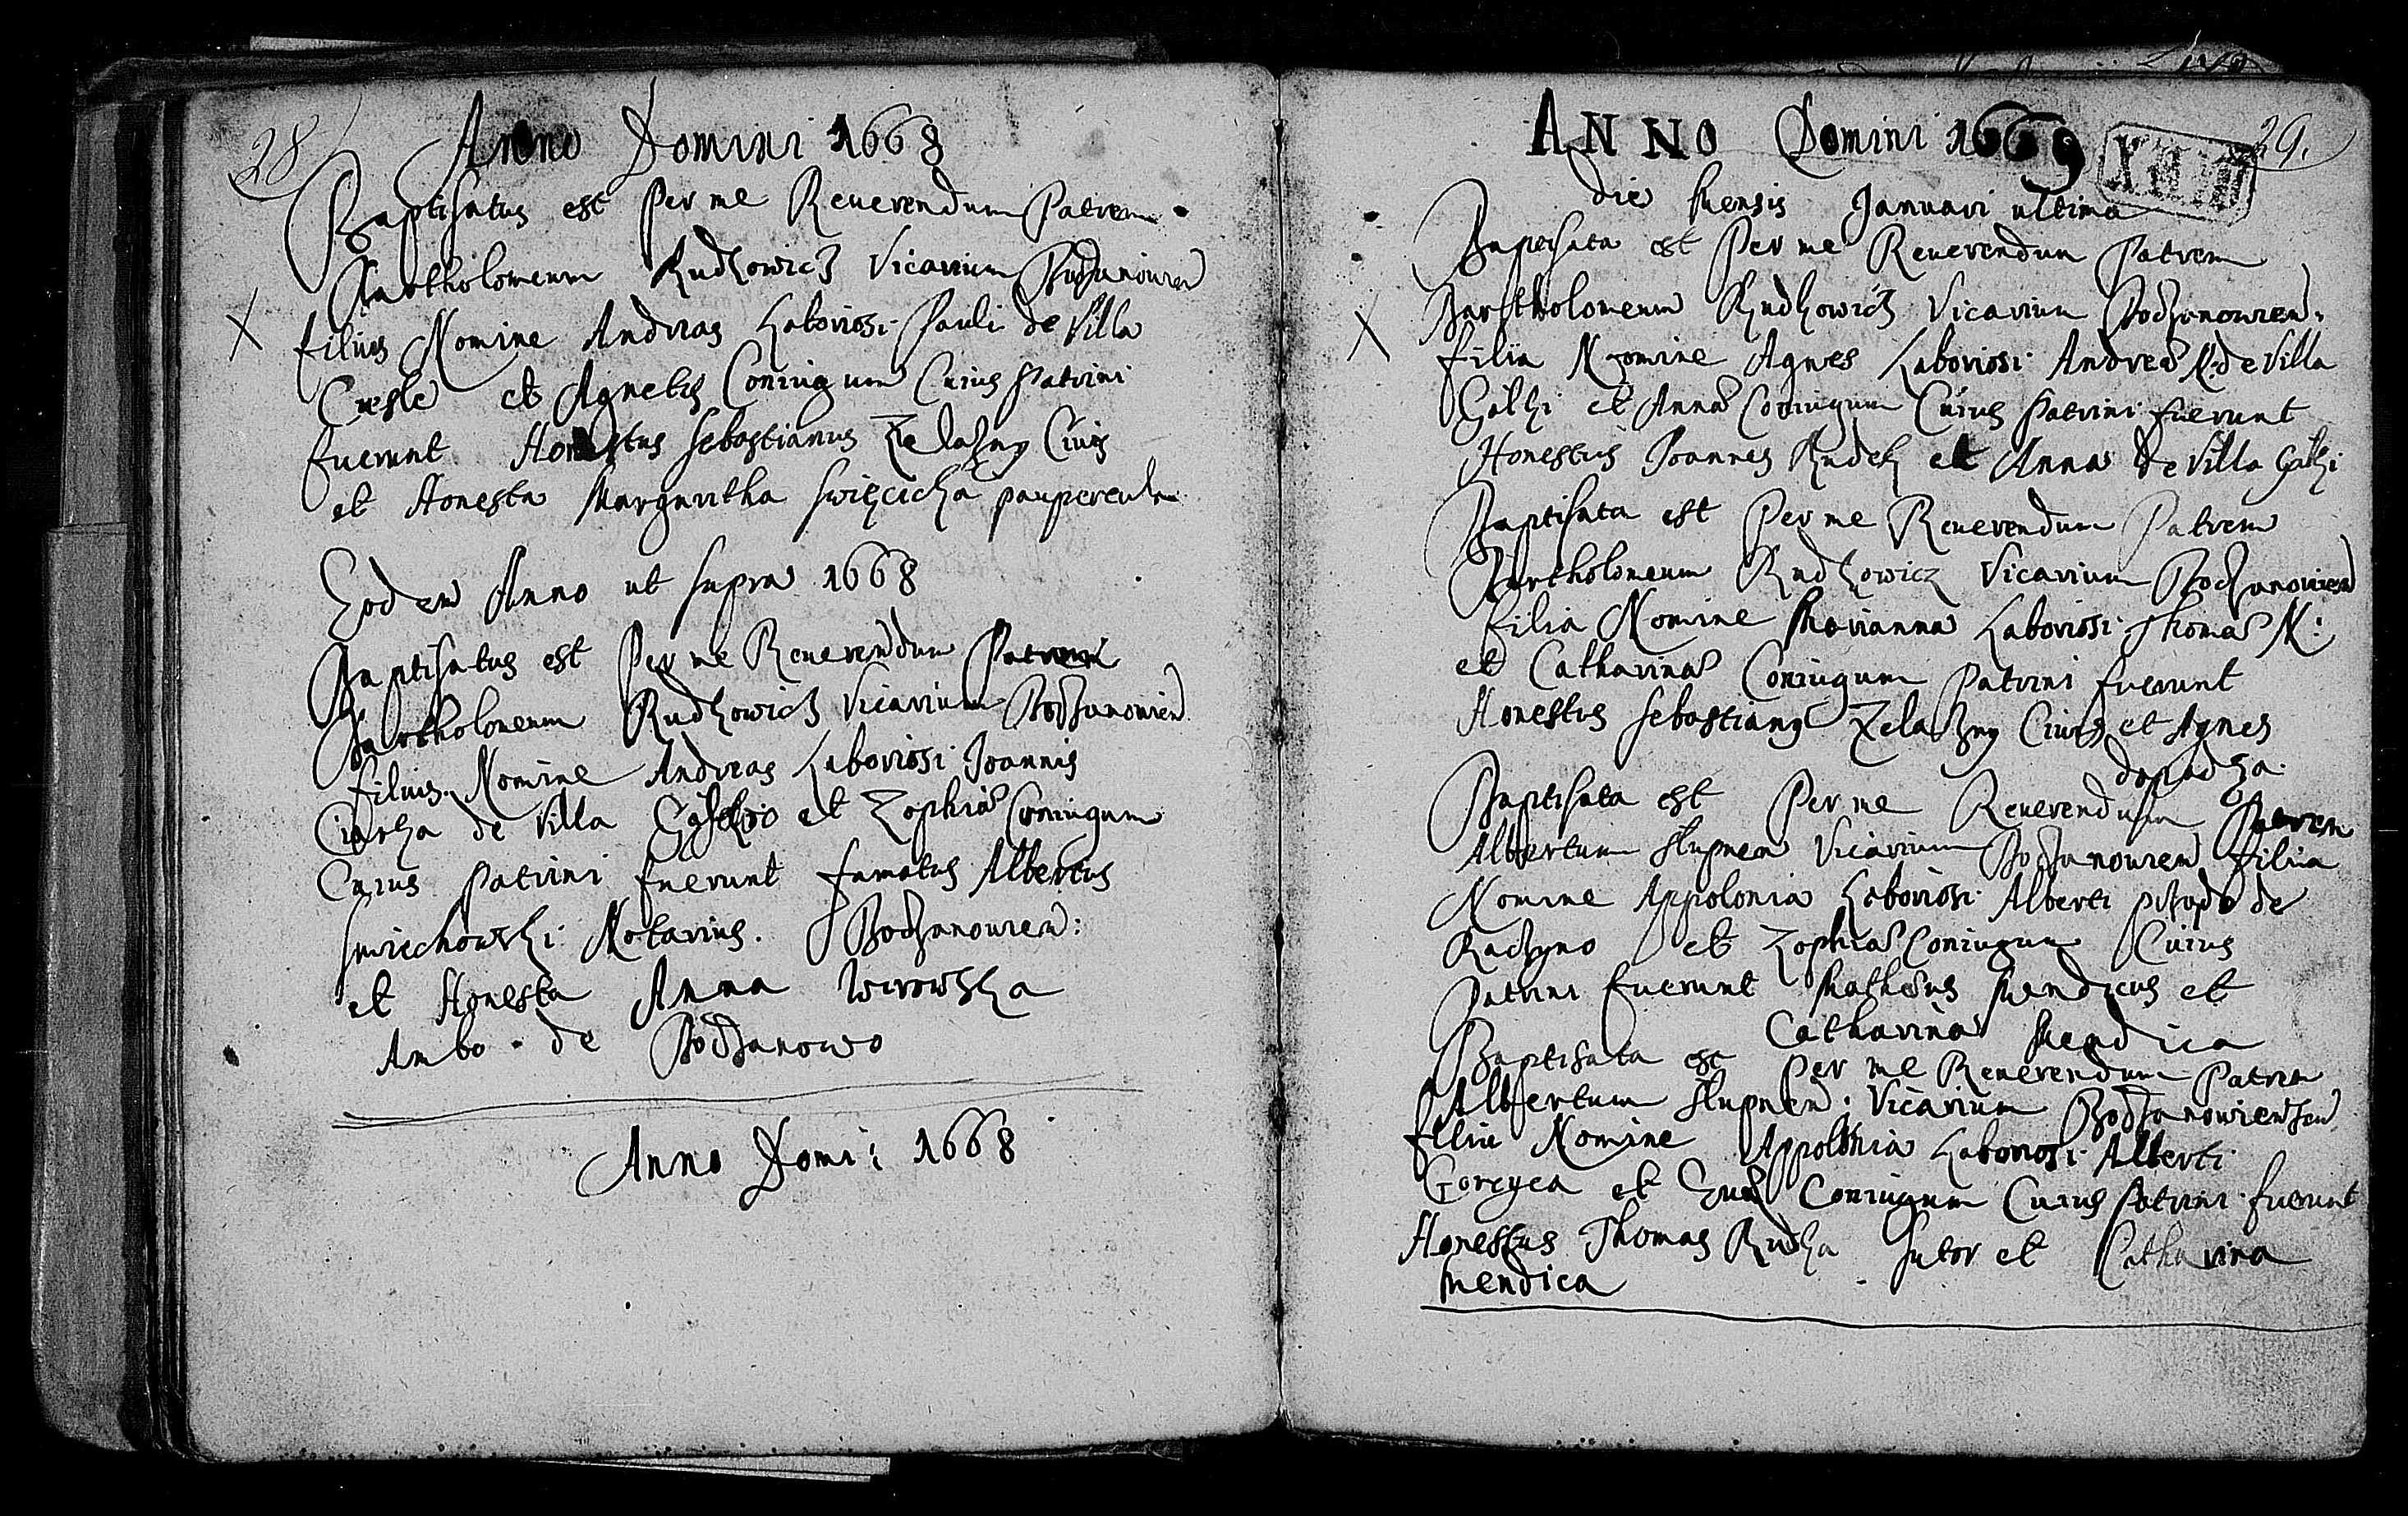 28
Anno Domini 1668
Baptisatus est Per me Reuerendum Patrem
Bartholomeum Rudkowicz Vicarium Bodzanouien
filius Nomine Andreas Laboriosi Pauli de Villa
et Agnetis Coniugum Cuius Patrini
fuerunt Honestus Sebastianus Zelazny Ciuis
et Honesta Margaritha Swięcicka paupercula
Eodem Anno ut supra 1668
Baptisatus est Per me Reuerendum Patrem
Bartholomeum Rudkowicz Vicarium Bodzanowien
filius Nomine Andreas Laboriosi Joannis
de Villa et Zophiæ Coniugum
Cuius Patrini fuerunt famatus Albertus
Smiechowski Notarius Bodzanouien:
et Honesta Anna
Ambo de Bodzanowo
Anno Domi: 1668
29.
ANNO Domini 1669
die Mensis Januari ultima
Baptisata est Per me Reuerendum Patrem
Bartholomeum Rudkowicz Vicarium Bodzanowien:
filia Nomine Agnes Laboriosi Andreæ N: de Villa
Galki et Annæ Coniugum Cuius Patrini fuerunt
Honestus Joannes Rudek et Anna de Villa Galki
Baptisata est Per me Reuerendum Patrem
Bartholomeum Rudkowicz Vicarium Bodzanouien
filia Nomine Marianna Laboriosi Thomæ N:
et Catharinæ Coniugum Patrini fuerunt
Honestus Sebastianus Zelazny Ciuis et Agnes
Baptisata est Per me Reuerendum Patrem
Albertum Slupnen Vicarium Bodzanouien filia
Nomine Appolonia Laboriosi Alberti de
Raczyno et Zophiæ Coniugum Cuius
Patrini fuerunt Matheus Mendicus et
Catharina Mendica
Baptisata est Per me Reuerendum Patrem
Albertum Slupnen: Vicarium Bodzanowiensem
filia Nomine Appolonia Laboriosi Alberti
Gorczyca et Euæ Coniugum Cuius Patrini fuerunt
Honestus Thomas Rudka Sutor et Catharina
mendica